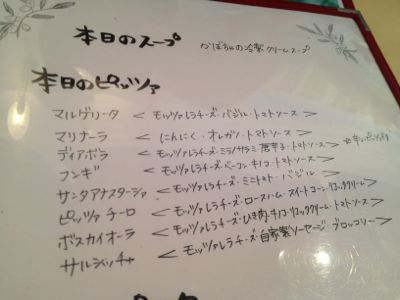 本日のスープ かぼちゃの冷製クリームスープ
本日のピッツァ
マルゲリータ < モッツァレラチーズ・バジル・トマトソース >
マリナーラ < にんにく・オレガノ・トマトソース >
ディアボラ < モッツァレラチーズ・ミラノサラミ・唐辛子・トマトソース >
フンギ < モッツァレラチーズ・ベーコン・キノコ・トマトソース >
サンタアナスターシャ < モッツァレラチーズ・ミニトマト・バジル >
ピッツァ チーロ < モッツァレラチーズ・ロースハム・スイートコーン・リコッタクリーム >
ボスカイオーラ < モッツァレラチーズ・ひき肉・キノコ・リコッタクリーム・トマトソース >
サルシッチャ < モッツァレラチーズ・自家製ソーセージ・ブロッコリー >